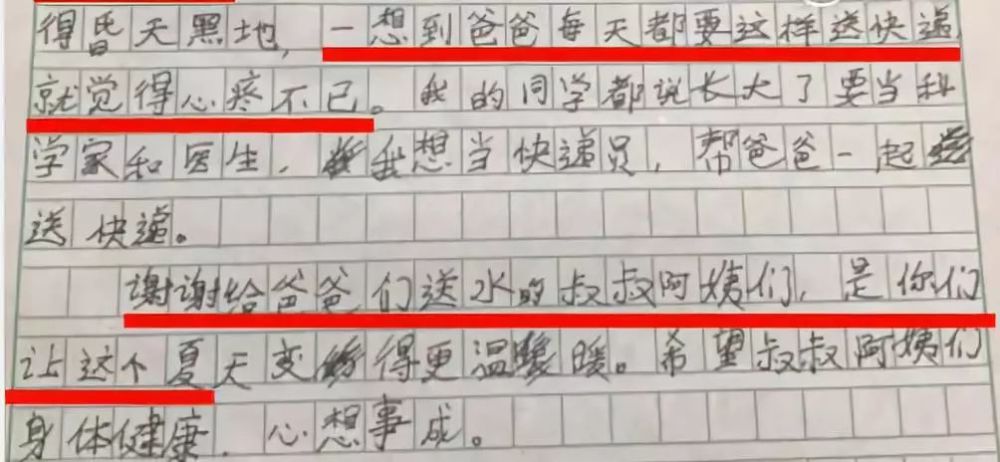 得昏天黑地，一想到爸爸每天都要这样送快递
就觉得心疼不已。我的同学都说长大了要当科
学家和医生，我想当快递员，帮爸爸一起
送快递。
谢谢给爸爸们送水的叔叔阿姨们，是你们
让这个夏天变得更温暖。希望叔叔阿姨们
身体健康，心想事成。